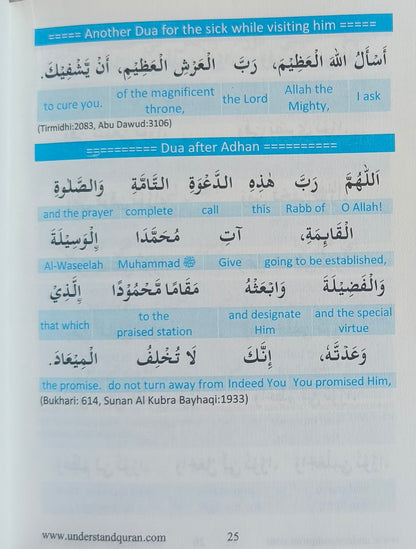 ===== Another Dua for the sick while visiting him =====
أَسْأَلُ اللهَ الْعَظِيْمَ، رَبَّ الْعَرْشِ الْعَظِيْمِ، أَنْ يَّشْفِيْكَ.
to cure you. of the magnificent throne, the Lord Allah the Mighty, I ask
(Tirmidhi:2083, Abu Dawud:3106)
========== Dua after Adhan ==========
اَللّٰهُمَّ رَبَّ هٰذِهِ الدَّعْوَةِ التَّامَّةِ وَالصَّلٰوةِ
and the prayer complete call this Rabb of O Allah!
الْقَائِمَةِ، آتِ مُحَمَّدَا ۨالْوَسِيْلَةَ
Al-Waseelah Muhammad ﷺ Give going to be established,
وَالْفَضِيْلَةَ وَابْعَثْهُ مَقَامًا مَّحْمُوْدًا ۨالَّذِيْ
that which to the praised station and designate Him and the special virtue
وَعَدْتَّهٗ، إِنَّكَ لَا تُخْلِفُ الْمِيْعَادَ.
the promise. do not turn away from Indeed You You promised Him,
(Bukhari: 614, Sunan Al Kubra Bayhaqi:1933)
www.understandquran.com 25